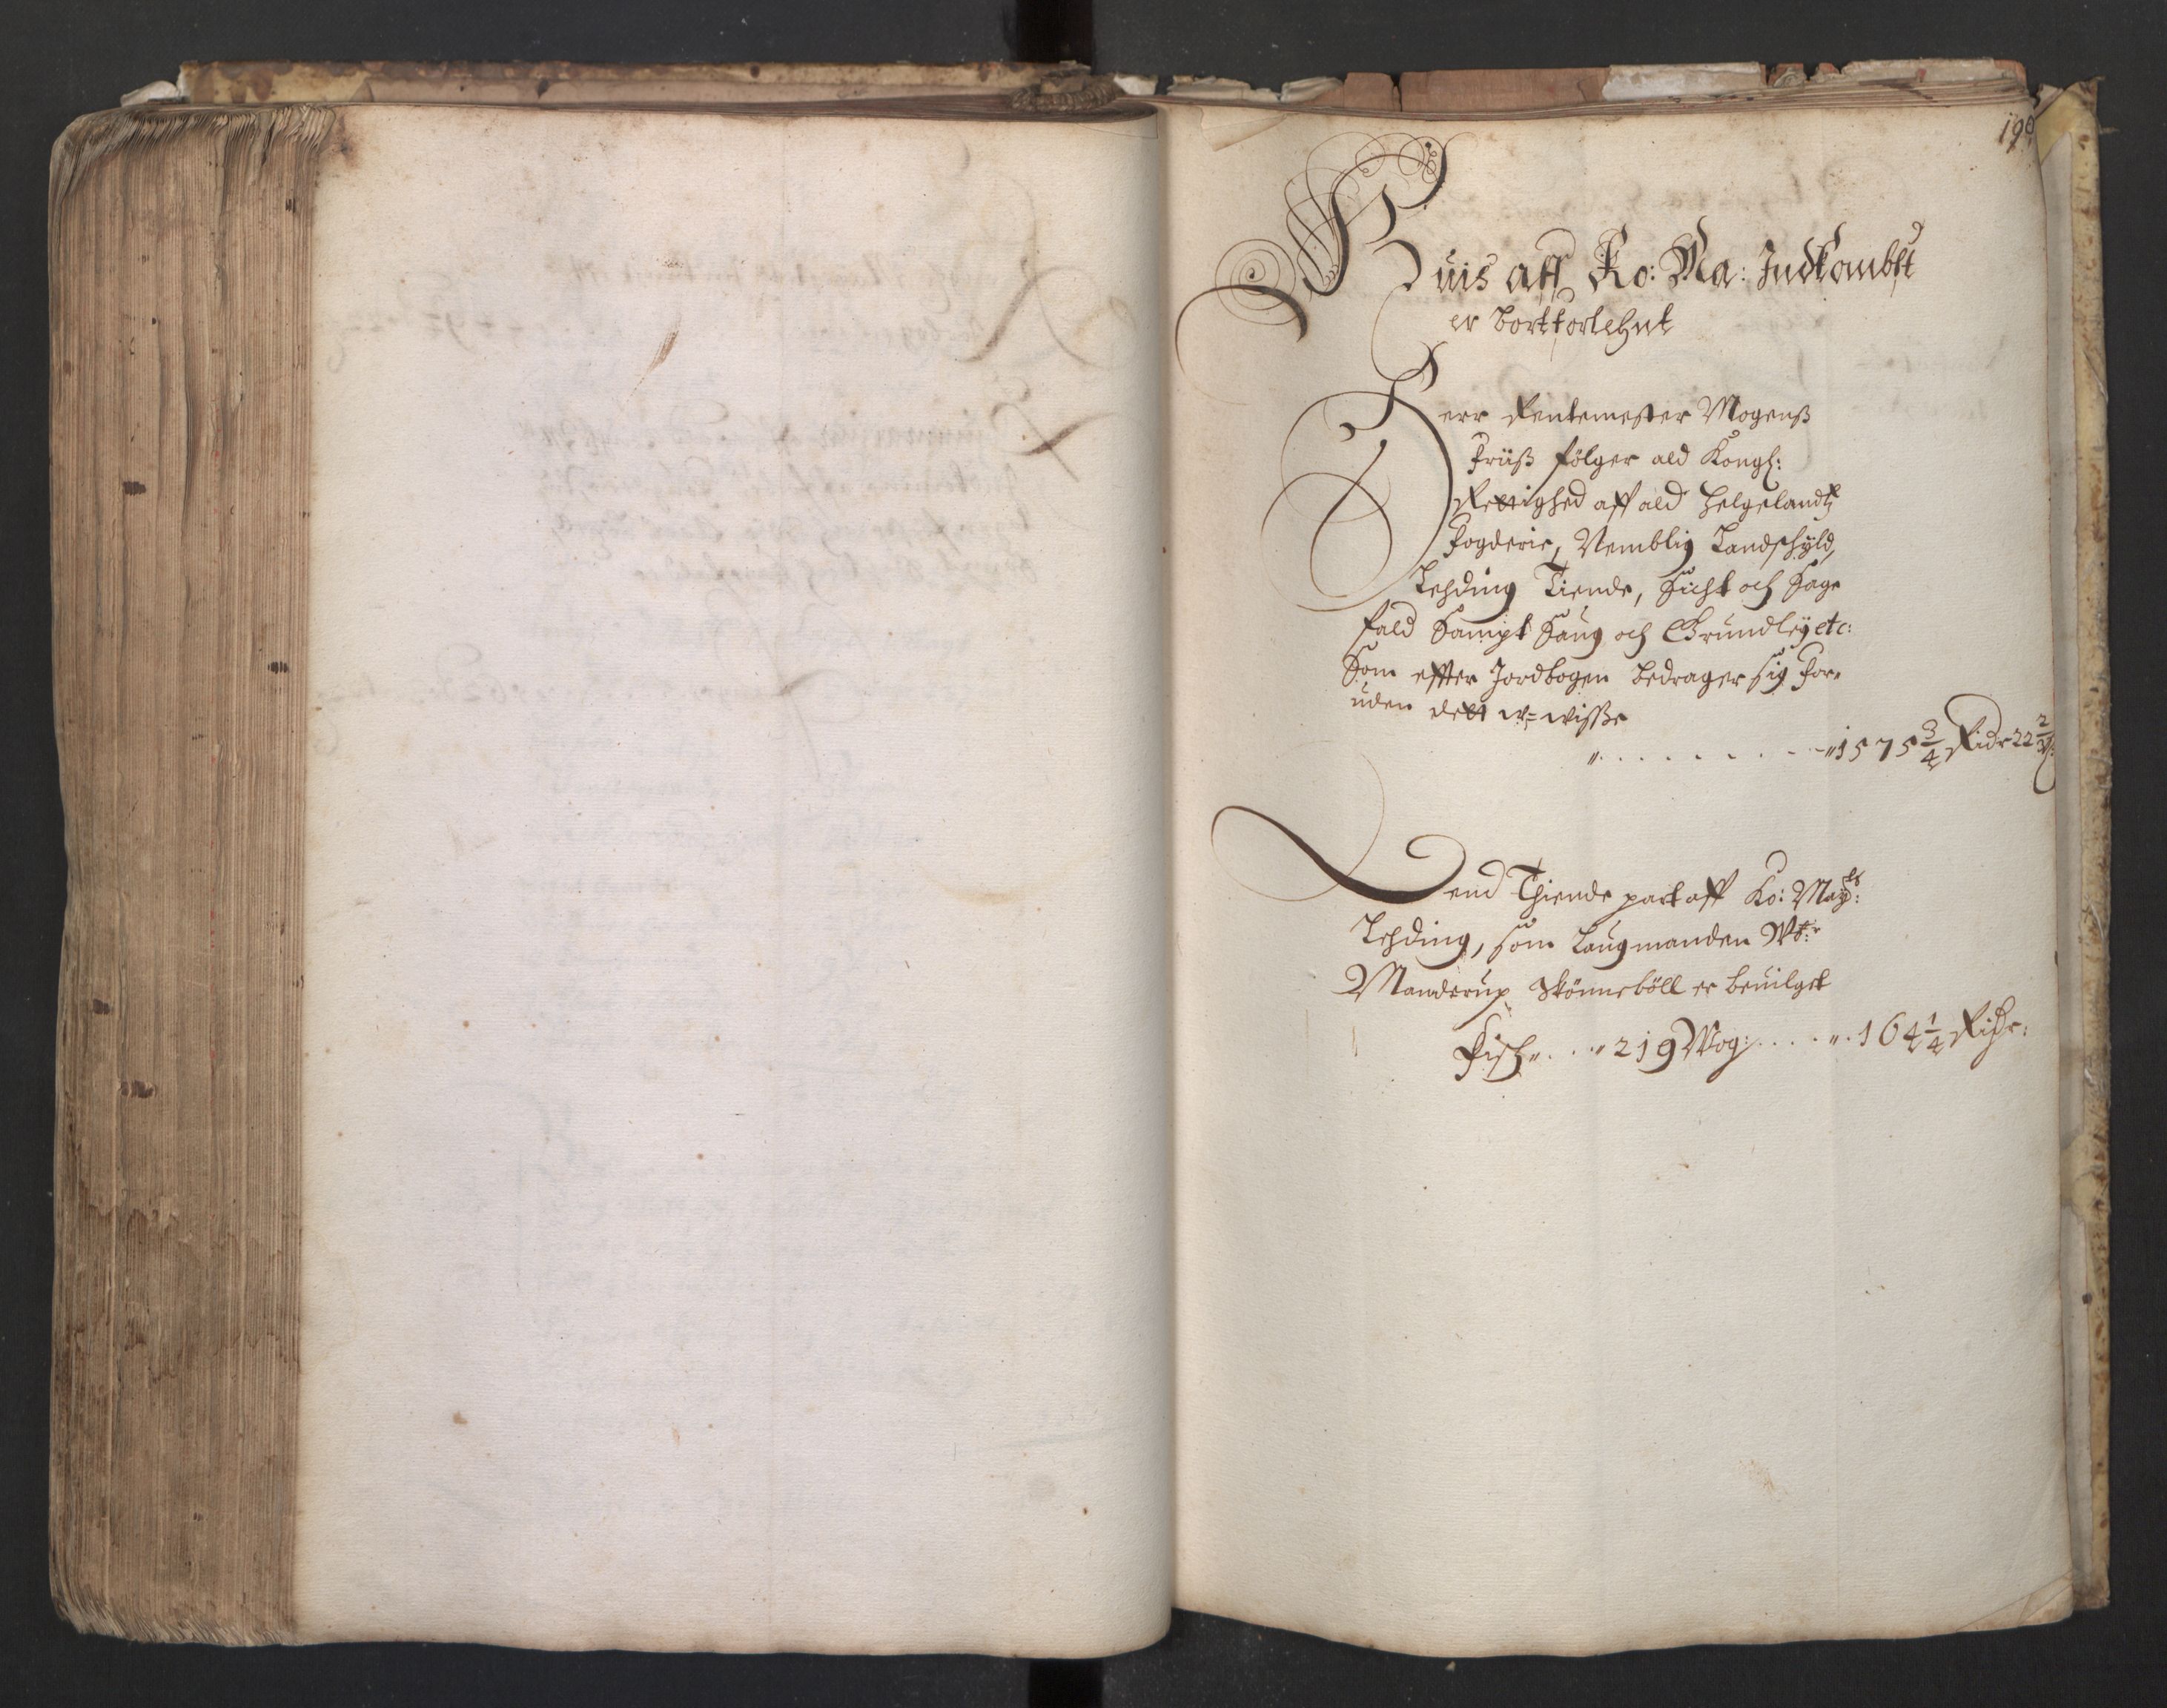 190
Huis aff Ko: Ma: Indkombst
er bortforlehnt
Herr Rentemester Mogenß
Früß følger ald Kongl:
Rettighed aff ald Helgelandtz
Fogderie, Nemblig Landschÿld,
Lehding Tiende, Sicht och Sage
fald Sampt Saug och Grundleÿ etc:
Som effter Jordbogen bedrager sig For=
uden dett w=wisse
" . . . . . . . "1575 3/4 Ridr 22 2/3 ß:
Dend Thiende part aff Ko: Maÿtz:
Lehding, som Laugmanden Wb:r
Manderup Skönneböll er beuilget
Fisk " . . " 219 Wog: . . . . " . 164 1/4 Ridr: